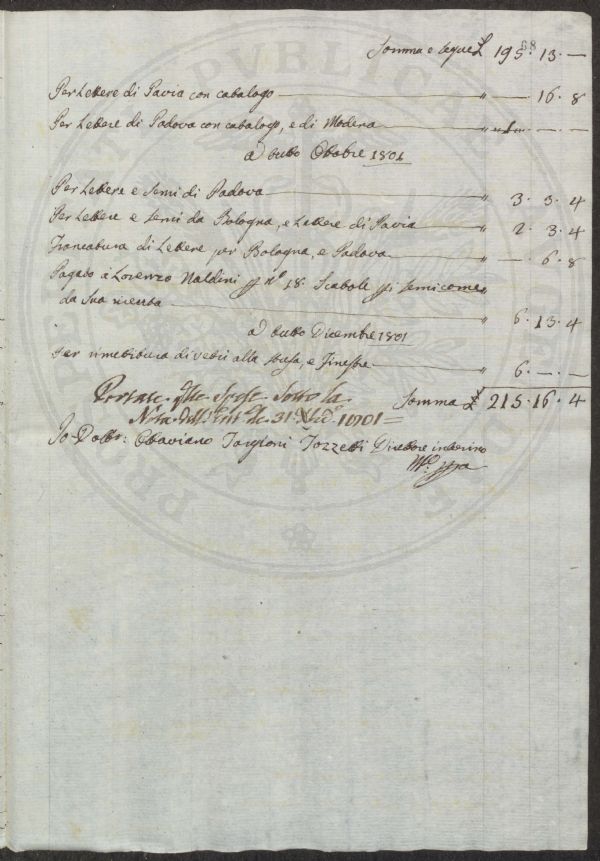 88
Somma e segue £ 195. 13. —
Per Lettere di Pavia con catalogo — " —. 16. 8
Per Lettere di Padova con catalogo, e di Modena — " — . — . —
a tutto Ottobre 1801
Per Lettere e Semi di Padova — " 3. 3. 4
Per Lettere e semi da Bologna, e Lettere di Pavia — " 2. 3. 4
Francatura di Lettere per Bologna, e Padova — " —. 6. 8
Pagato a Lorenzo Naldini p n° 18. Scatole p semi come "
da sua ricevuta — " 6. 13. 4
a tutto Dicembre 1801
Per rimettitura di vetri alla stufa, e finestre — " 6. —. —
Portate qste Spese Sotto la Somma £ 215. 16. 4
Nota dell' 31. 1801 =
Io Dottr: Ottaviano Targioni Tozzetti Direttore interino
Mo. ppa
PUBLICAE